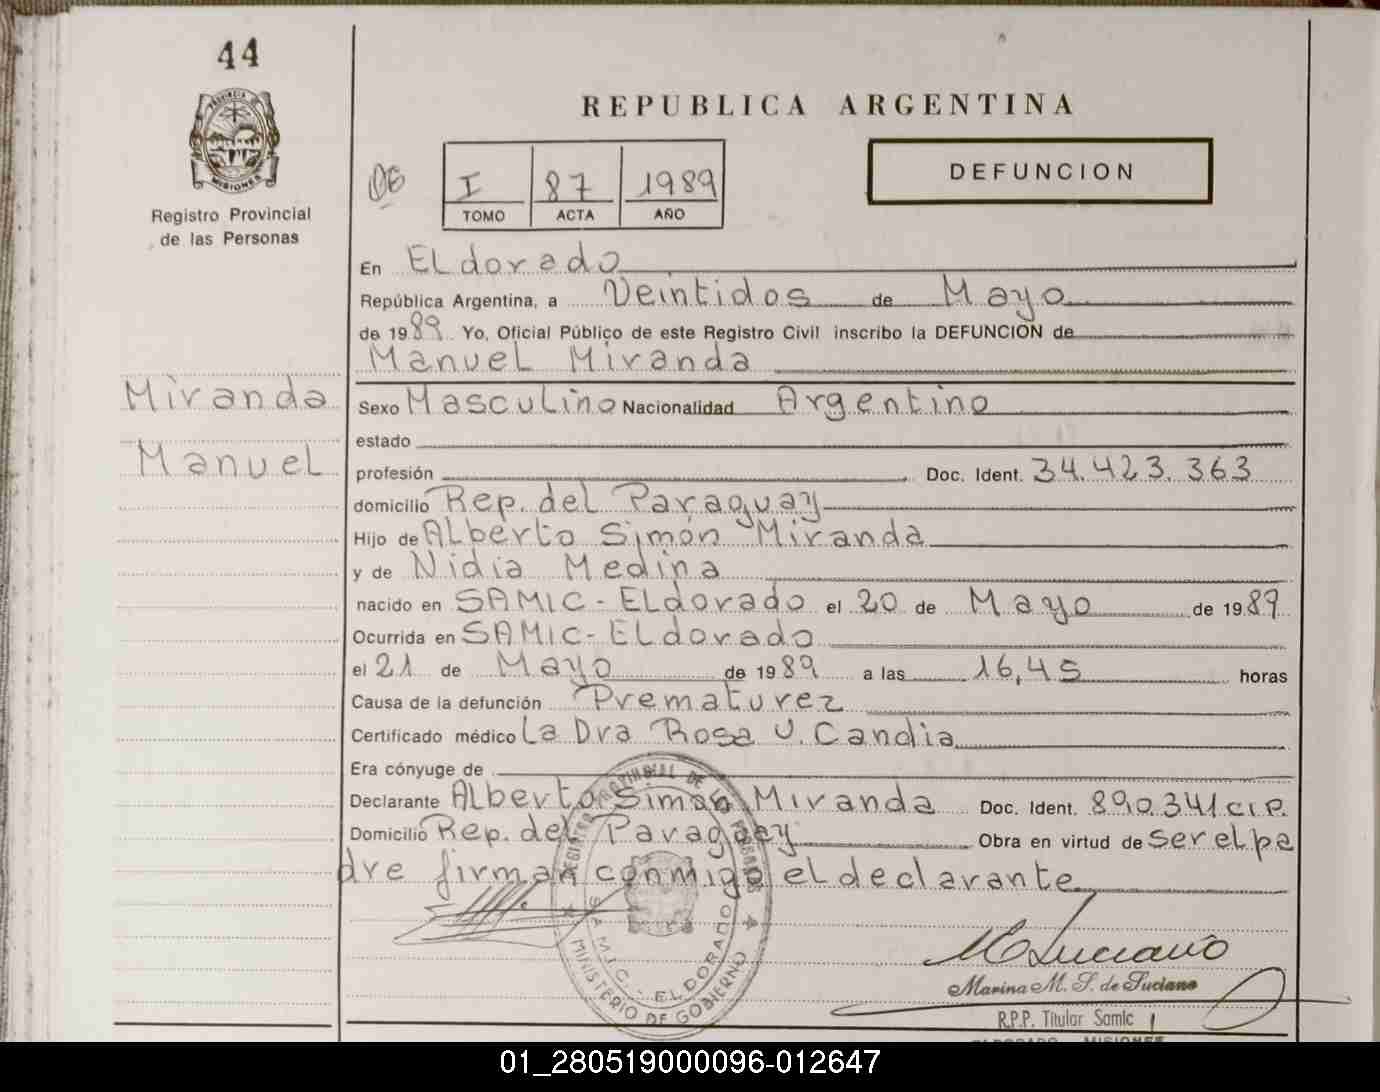 44
PROVINCIA DE
MISIONES
Registro Provincial
de las Personas
REPUBLICA ARGENTINA
DEFUNCION
I 87 1989
TOMO ACTA AÑO
En ELdorado
República Argentina, a Veintidos de Mayo
de 1989 Yo, Oficial Público de este Registro Civil inscribo la DEFUNCION de
Manuel Miranda
Miranda
Manuel
Sexo Masculino Nacionalidad Argentino
estado
profesión Doc. Ident. 34.423.363
domicilio Rep. del Paraguay
Hijo de Alberto Simón Miranda
y de Nidia Medina
nacido en SAMIC-ELdorado el 20 de Mayo de 1989
Ocurrida en SAMIC-ELdorado
el 21 de Mayo de 1989 a las 16,45 horas
Causa de la defunción Prematurez
Certificado médico La Dra Rosa U. Candia
Era cónyuge de
Declarante Alberto Simon Miranda Doc. Ident. 890.341 C.I.P.
Domicilio Rep. del Paraguay Obra en virtud de ser el pa
dre firman conmigo el declarante
REGISTRO PROVINCIAL DE LAS PERSONAS
S.A.M.I.C. - ELDORADO
MINISTERIO DE GOBIERNO
M Luciano
Marina M. S. de Luciano
R.P.P. Titular Samic
ELDORADO MISIONES
01_280519000096-012647